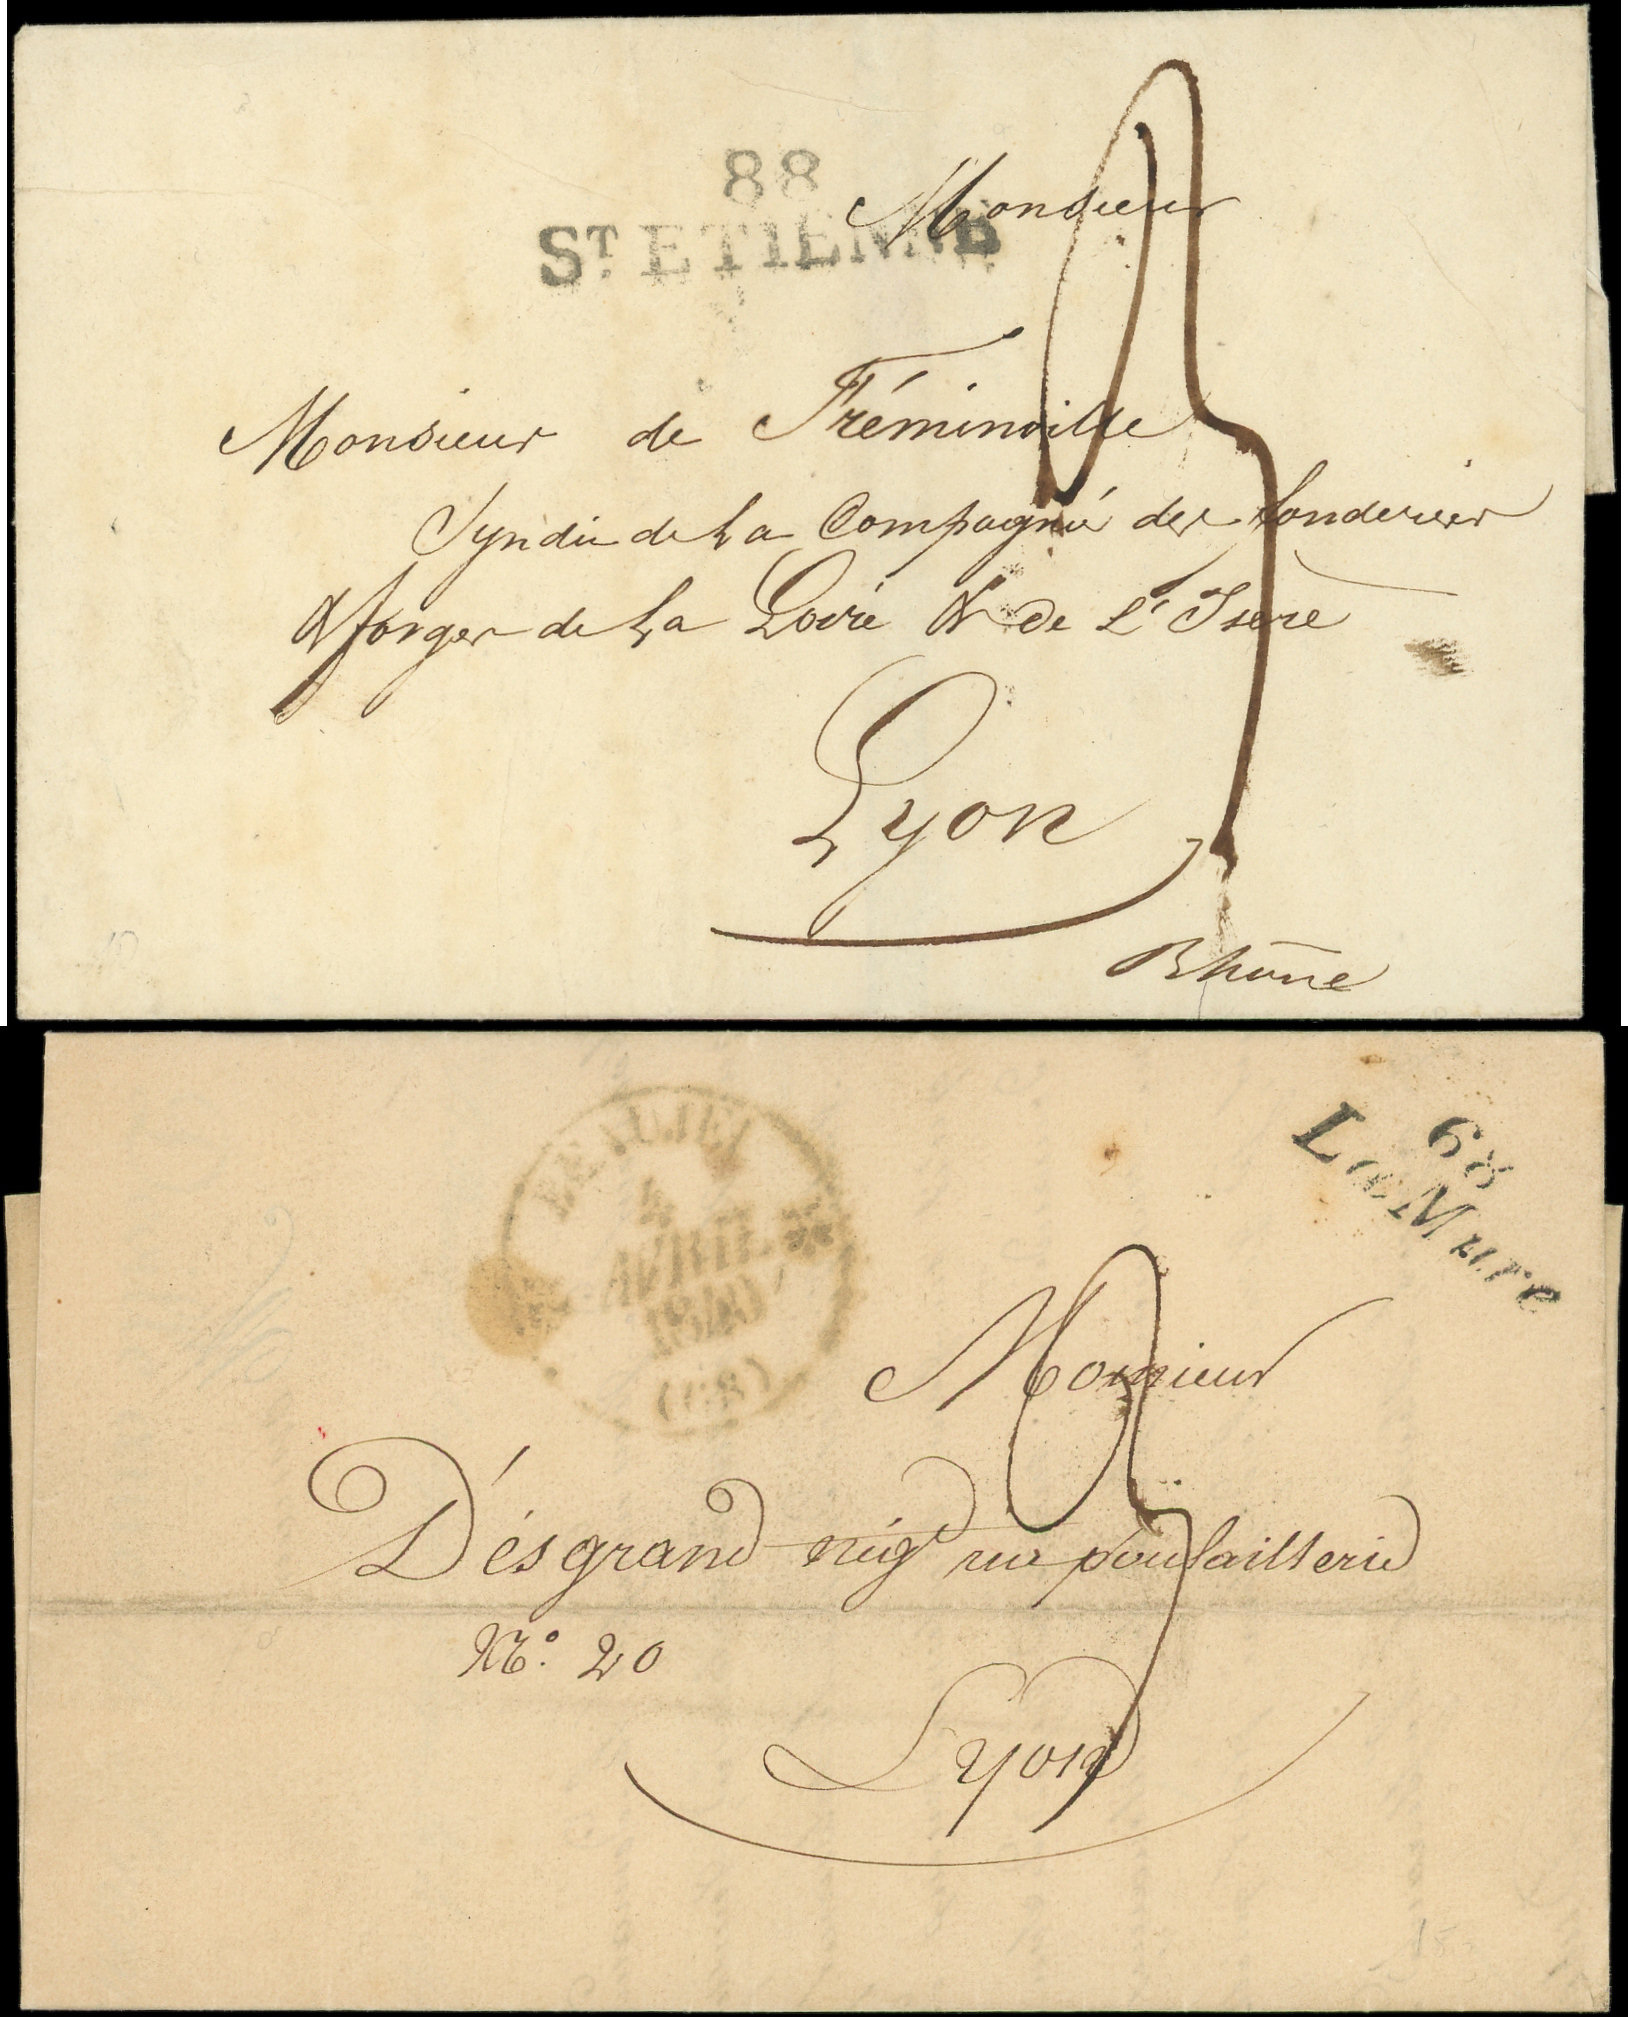 88
ST. ETIENNE
Monsieur
Monsieur de Fréminville
Syndic de La Compagnie des fonderies
& forges de La Loire & de L'Isère
Lyon
Rhône
68
LaMure
BEAUJEU
AVRIL
(68)
Monsieur
Désgrand nég.t rue poulaillerie
No. 20
Lyon